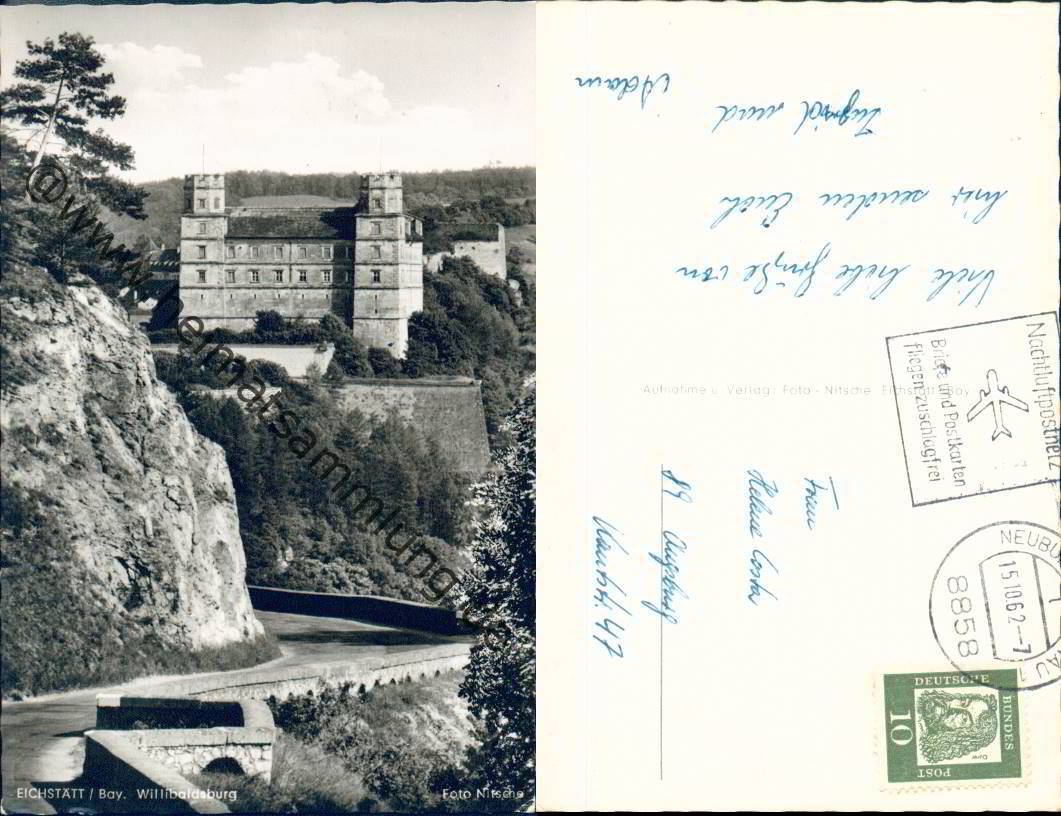 EICHSTÄTT / Bay. Willibaldsburg
Foto Nitsche
@ www.heimatsammlung.
Viele liebe Grüße von
hier senden Euch
Ingrid und
Adam
Aufnahme u. Verlag: Foto - Nitsche, Eichstätt/Bay
Frau
Helene
89 Augsburg
47
Nachtluftpostnetz
Briefe und Postkarten
fliegen zuschlagfrei
NEUBU
15.10.62-7
8858
DEUTSCHE
BUNDES
POST
10
Dürer